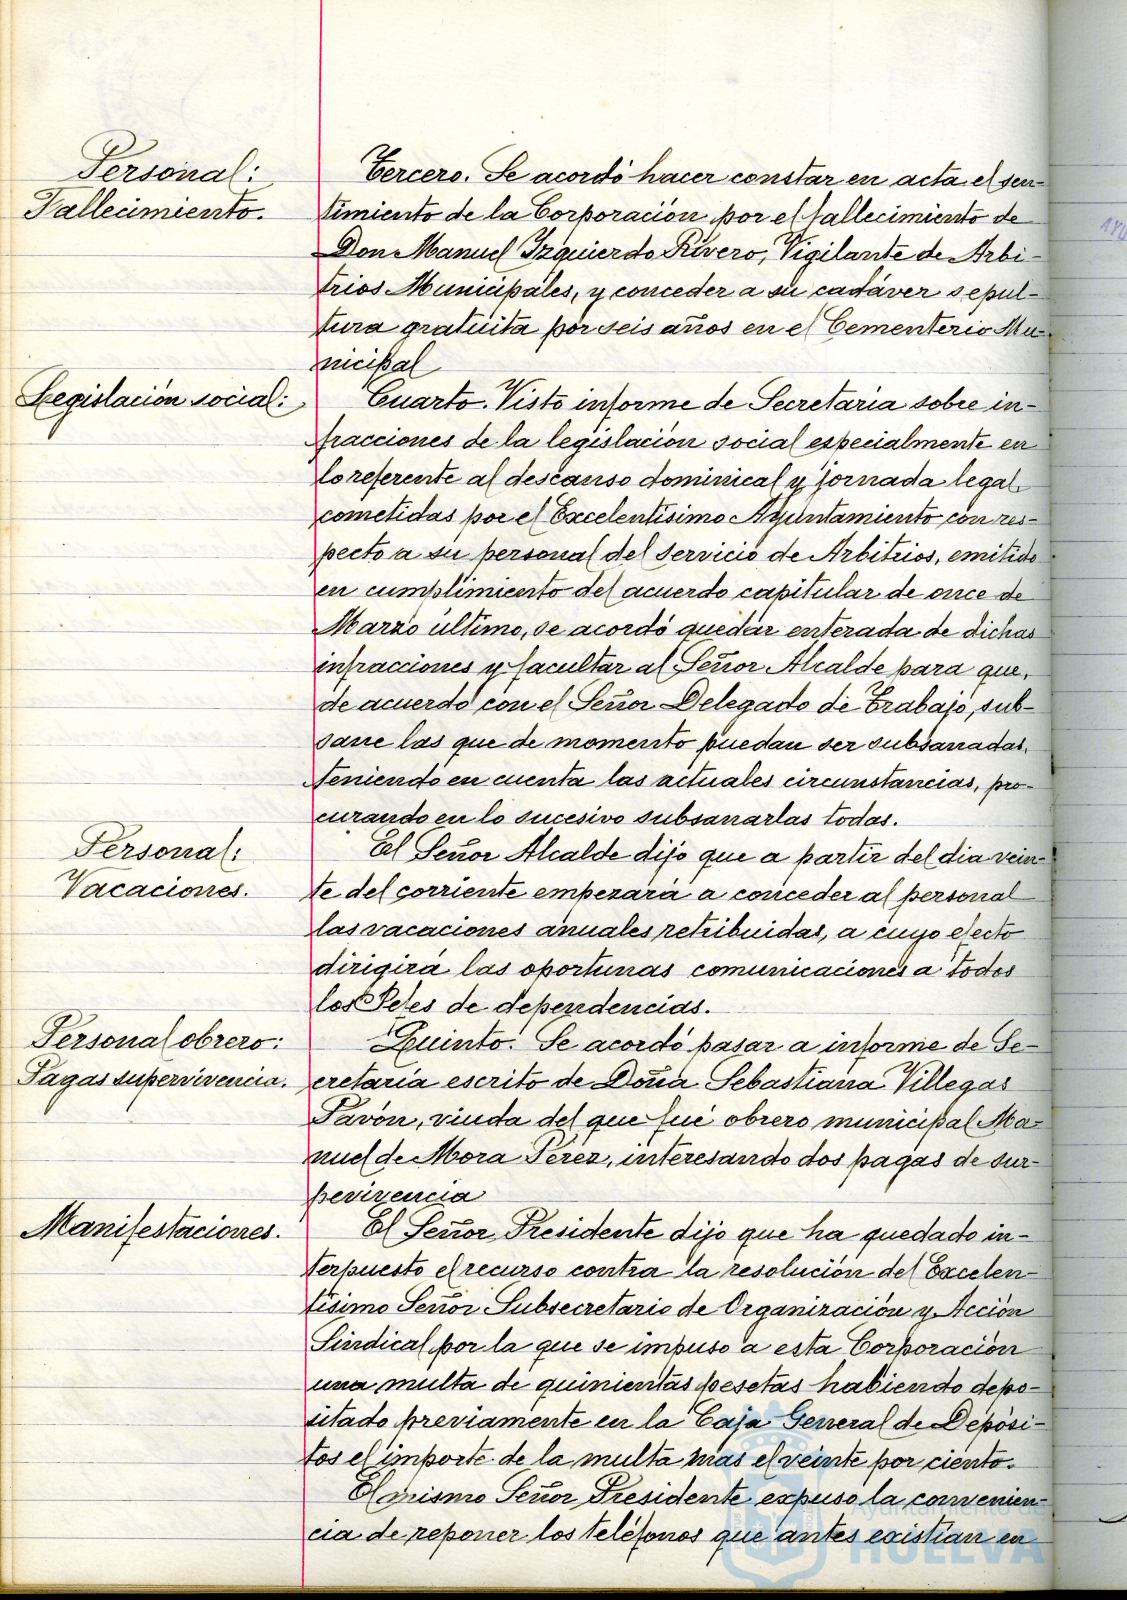 Personal:
Fallecimiento.
Tercero. Se acordó hacer constar en acta el sen-
timiento de la Corporación por el fallecimiento de
Don Manuel Izquierdo Rivero, Vigilante de Arbi-
trios Municipales, y conceder a su cadáver sepul-
tura gratuita por seis años en el Cementerio Mu-
nicipal
Legislación social:
Cuarto. Visto informe de Secretaria sobre in-
fracciones de la legislación social especialmente en
lo referente al descanso dominical y jornada legal,
cometidas por el Excelentísimo Ayuntamiento con res-
pecto a su personal del servicio de Arbitrios, emitido
en cumplimiento del acuerdo capitular de once de
Marzo último, se acordó quedar enterada de dichas
infracciones y facultar al Señor Alcalde para que,
de acuerdo con el Señor Delegado de Trabajo, sub-
sane las que de momento puedan ser subsanadas,
teniendo en cuenta las actuales circunstancias, pro-
curando en lo sucesivo subsanarlas todas.
Personal:
Vacaciones.
El Señor Alcalde dijo que a partir del dia vein-
te del corriente empezará a conceder al personal
las vacaciones anuales retribuidas, a cuyo efecto
dirigirá las oportunas comunicaciones a todos
los Jefes de dependencias.
Personal obrero:
Pagas supervivencia.
Quinto. Se acordó pasar a informe de Se-
cretaría escrito de Doña Sebastiana Villegas
Pavón, viuda del que fué obrero municipal Ma-
nuel de Mora Pérez, interesando dos pagas de sur-
pevivencia
Manifestaciones.
El Señor Presidente dijo que ha quedado in-
terpuesto el recurso contra la resolución del Excelen-
tísimo Señor Subsecretario de Organización y Acción
Sindical por la que se impuso a esta Corporación
una multa de quinientas pesetas habiendo depo-
sitado previamente en la Caja General de Depósi-
tos el importe de la multa mas el veinte por ciento.
El mismo Señor Presidente expuso la convenien-
cia de reponer los teléfonos que antes existían en
Ayuntamiento de
HUELVA